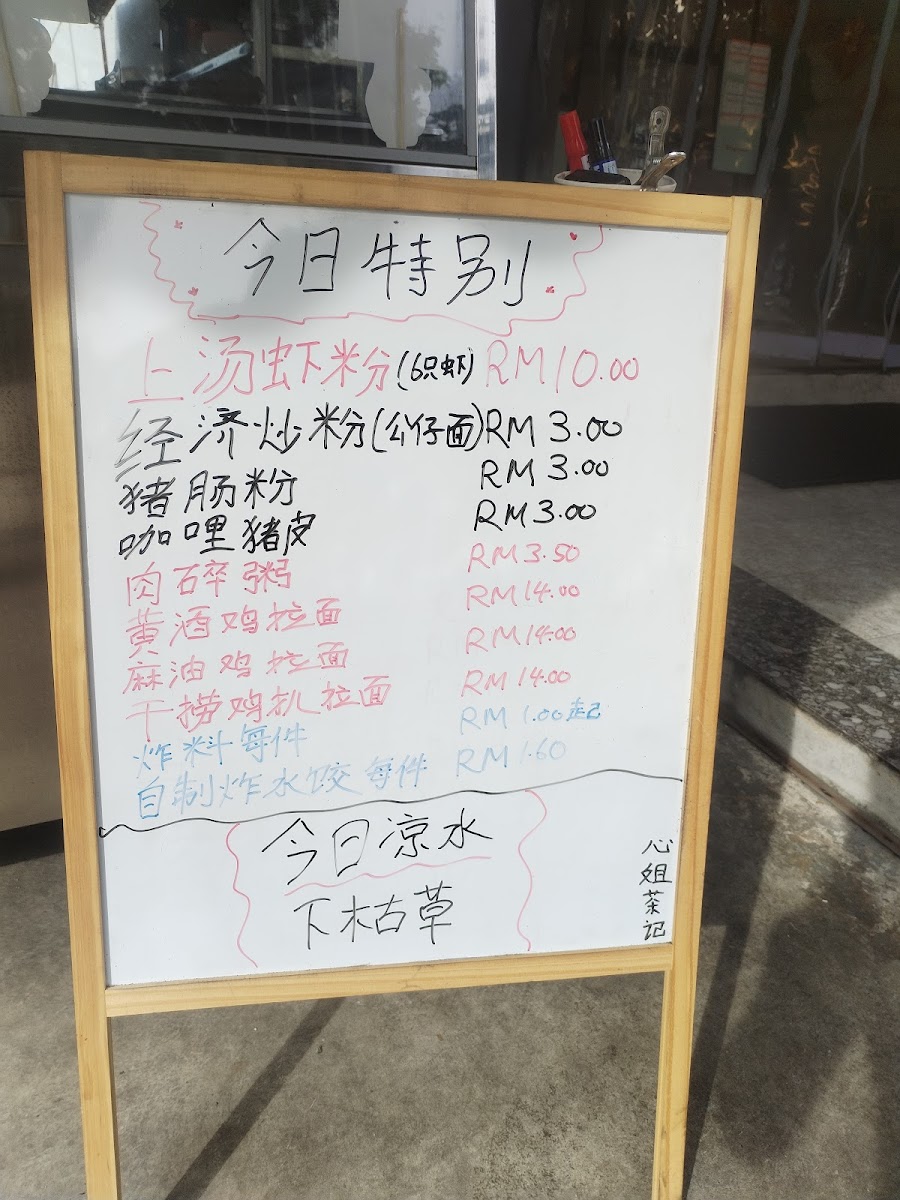 今日特别
上汤虾粉(6只虾) RM10.00
经济炒粉(公仔面) RM 3.00
猪肠粉 RM 3.00
咖哩猪皮 RM3.00
肉碎粥 RM3.50
黄酒鸡拉面 RM14.00
麻油鸡拉面 RM14.00
干捞鸡扒拉面 RM14.00
炸料每件 RM 1.00起
自制炸水饺每件 RM 1.60
今日凉水
下枯草
心姐茶记